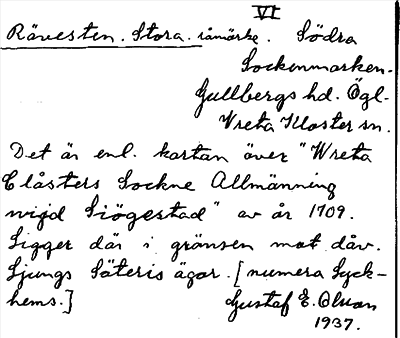 VI
Rävesten. Stora. råmärke. Södra
Sockenmarken.
Gullbergs hd. Ögl.
Wreta Kloster sn.
Det är enl. kartan över "Wreta
Clåsters Sockne Allmänning
wijd Siögestad" av år 1709.
Ligger där i gränsen mot dåv.
Ljungs Säteris ägor. [numera Lyck-
hems.] Gustaf E. Olson
1937.